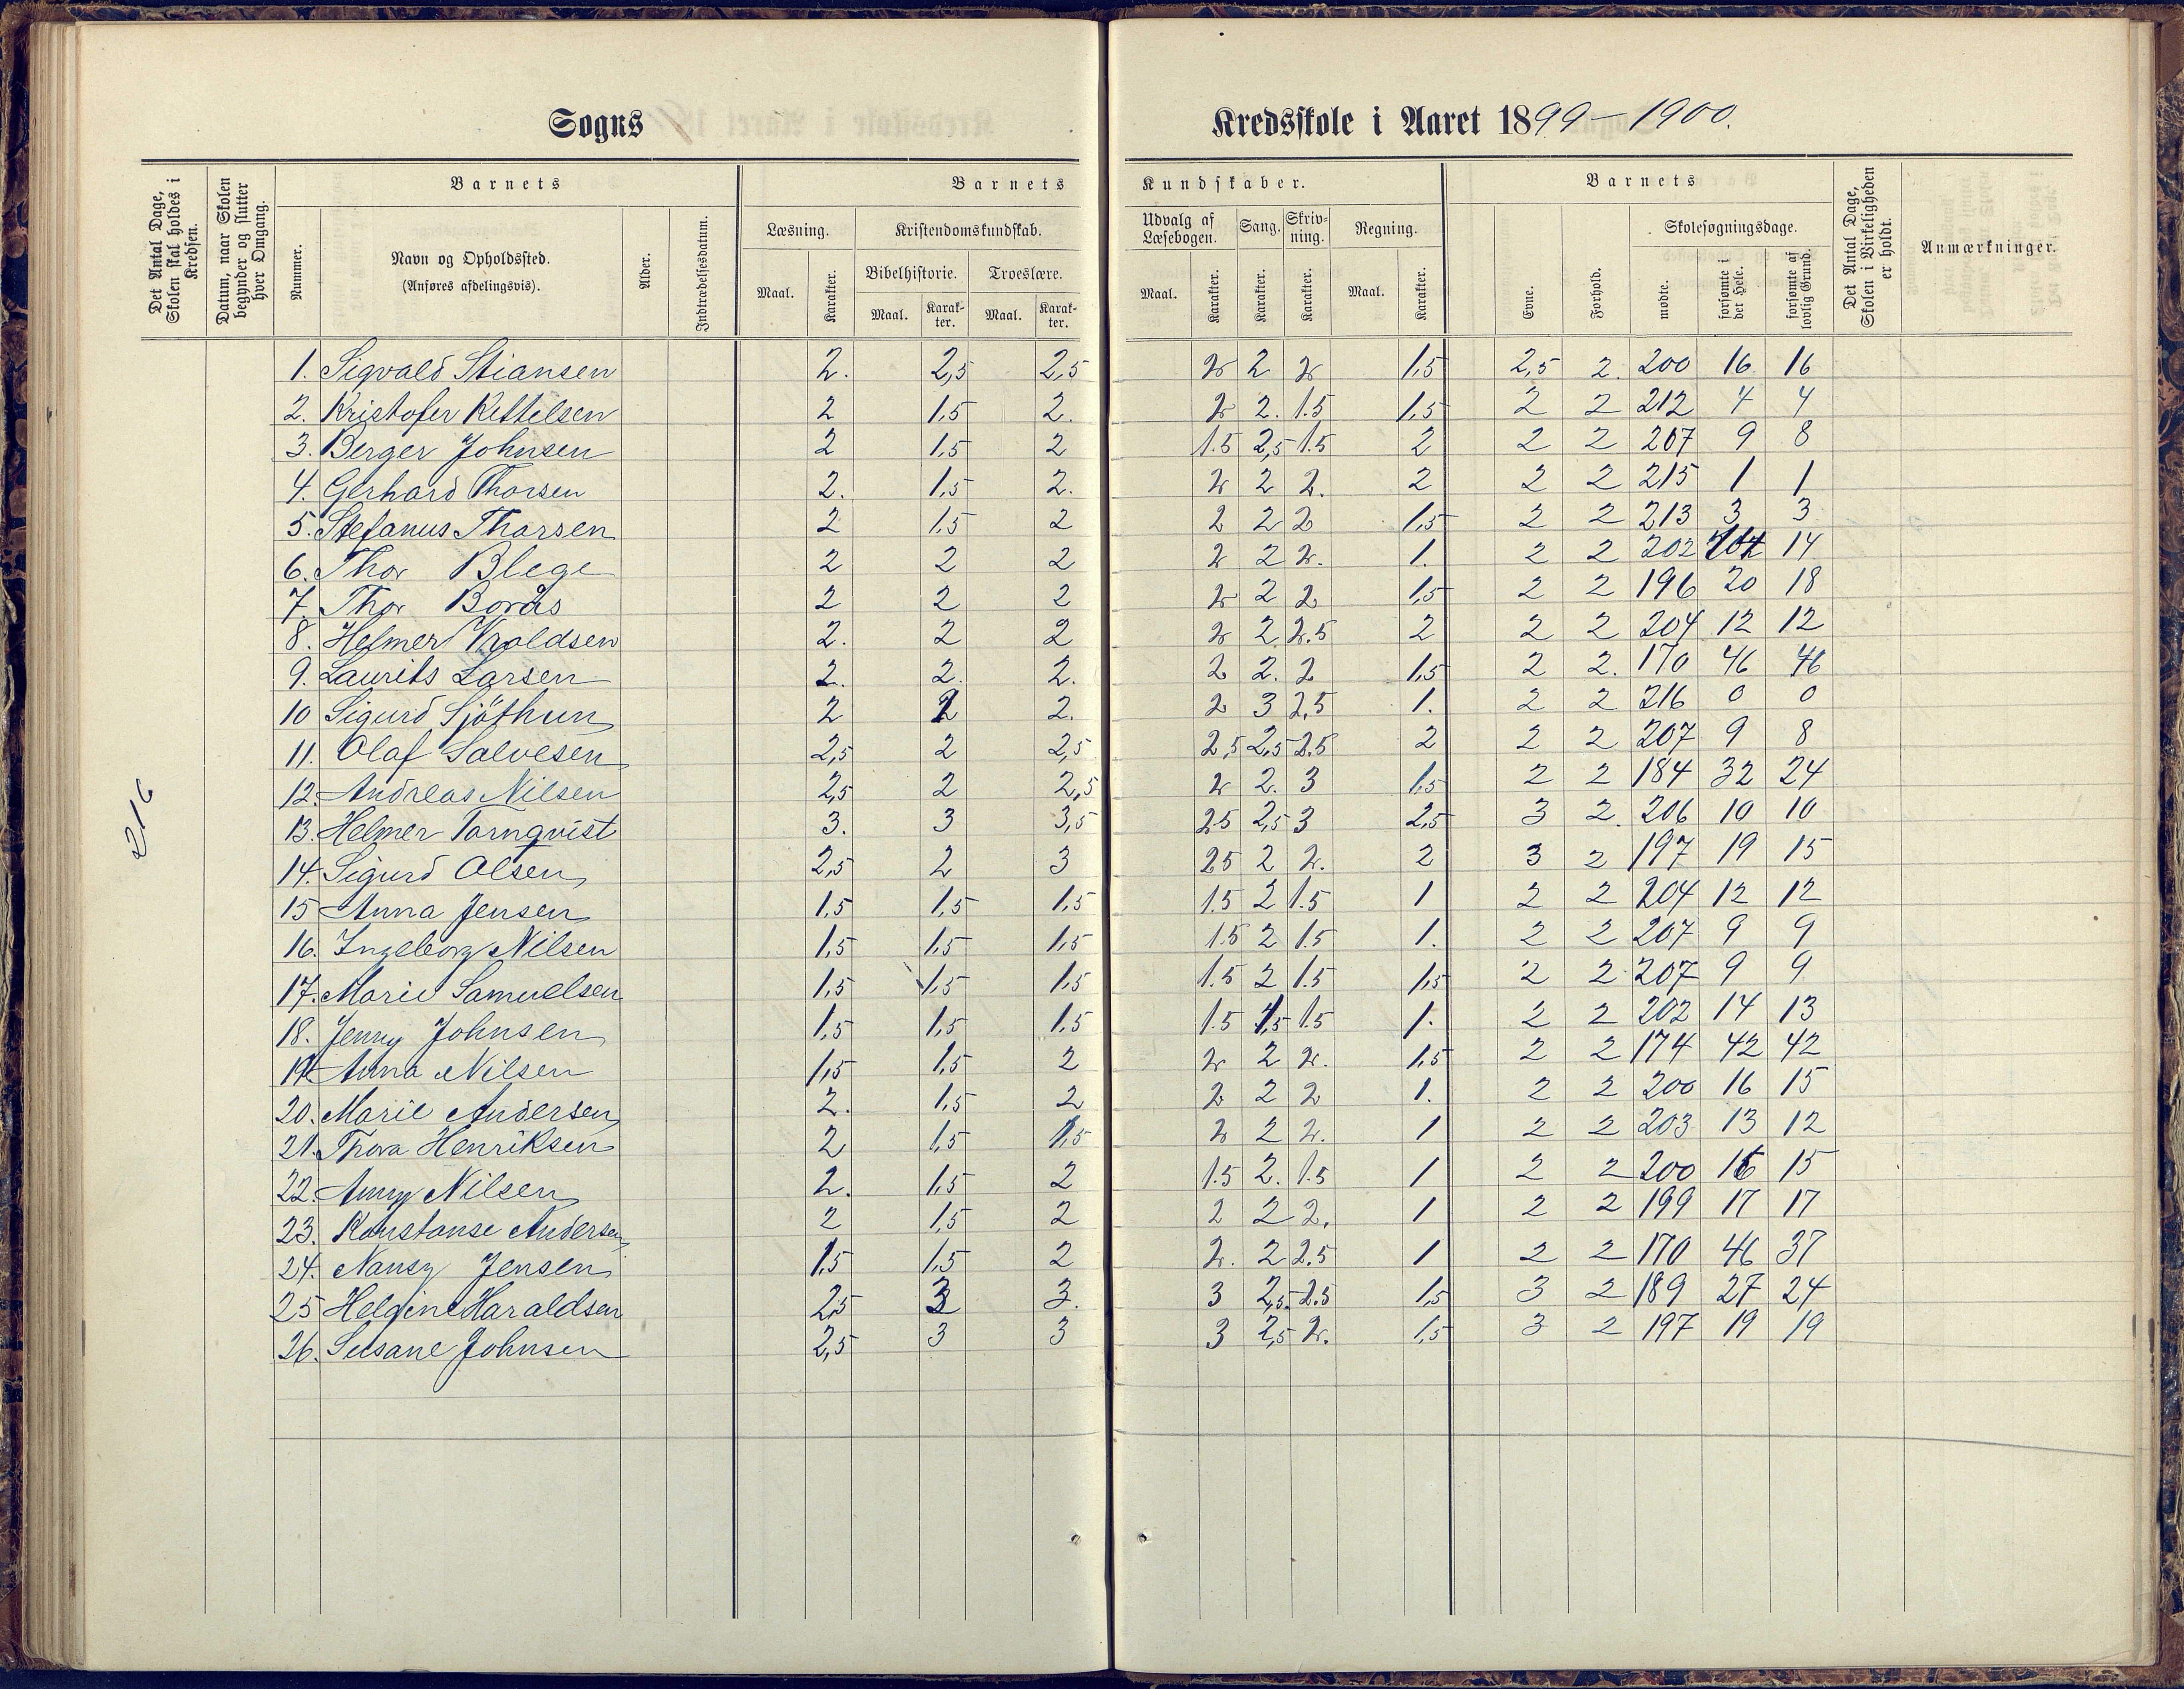 Sogns Kredsskole i Aaret 1899–1900.
Det Antal Dage, Skolen skal holdes i Kredsen.
Datum, naar Skolen begynder og slutter hver Omgang.
Barnets
Nummer.
Navn og Opholdssted.
(Anføres afdelingsvis).
Alder.
Indtrædelsesdatum.
Barnets Kundskaber.
Læsning.
Maal. Karakter.
Kristendomskundskab.
Bibelhistorie. Troeslære.
Maal. Karakter. Maal. Karakter.
Udvalg af Læsebogen.
Maal. Karakter.
Sang.
Karakter.
Skrivning.
Karakter.
Regning.
Maal. Karakter.
Barnets
Evne.
Forhold.
Skolesøgningsdage.
mødte.
forsømte i det Hele.
forsømte af lovlig Grund.
Det Antal Dage, Skolen i Virkeligheden er holdt.
Anmærkninger.
216
1. Sigvald Stiansen 2. 2,5 2,5 2 2 2 1,5 2,5 2. 200 16 16
2. Kristofer Kittelsen 2 1,5 2. 2 2. 1.5 1,5 2 2 212 4 4
3. Berger Johnsen 2 1,5 2 1.5 2,5 1.5 2 2 2 207 9 8
4. Gerhard Thorsen 2. 1,5 2. 2 2 2. 2 2 2 215 1 1
5. Stefanus Thorsen 2 1,5 2 2 2 2 1,5 2 2 213 3 3
6. Thor Blege 2 2 2 2 2 2. 1. 2 2 202 14 14
7. Thor Borås 2 2 2 2 2 2 1,5 2 2 196 20 18
8. Helmer Vroldsen 2. 2 2 2 2 2.5 2 2 2 204 12 12
9. Laurits Larsen 2. 2. 2. 2 2. 2 1,5 2 2. 170 46 46
10 Sigurd Sjöthun 2 2 2. 2 3 2,5 1. 2 2 216 0 0
11. Olaf Salvesen 2,5 2 2,5 2,5 2,5 2.5 2 2 2 207 9 8
12. Andreas Nilsen 2,5 2 2,5 2 2. 3 1,5 2 2 184 32 24
13. Helmer Tornqvist 3. 3 3,5 25 2,5 3 2,5 3 2. 206 10 10
14. Sigurd Olsen 2,5 2 3 25 2 2. 2 3 2 197 19 15
15 Anna Jensen 1,5 1,5 1,5 1.5 2 1.5 1 2 2 204 12 12
16. Ingeborg Nilsen 1,5 1,5 1,5 1.5 2 1.5 1. 2 2 207 9 9
17. Marie Samuelsen 1,5 1,5 1,5 1.5 2 1.5 1,5 2 2 207 9 9
18. Jenny Johnsen 1,5 1,5 1,5 1.5 1,5 1.5 1. 2 2 202 14 13
19. Anna Nilsen 1,5 1,5 2 2 2 2. 1,5 2 2 174 42 42
20. Marie Andersen 2. 1,5 2 2 2 2 1. 2 2 200 16 15
21. Thora Henriksen 2 1,5 1,5 2 2 2. 1 2 2 203 13 12
22. Anny Nilsen 2. 1,5 2 1.5 2. 1.5 1 2 2 200 16 15
23. Konstanse Andersen 2 1,5 2 2 2 2. 1 2 2 199 17 17
24. Nansy Jensen 1,5 1,5 2 2. 2 2.5 1 2 2 170 46 37
25 Helgine Haraldsen 2,5 3 3. 3 2,5 2.5 1,5 3 2 189 27 24
26. Susane Johnsen 2,5 3 3 3 2,5 2. 1,5 3 2 197 19 19